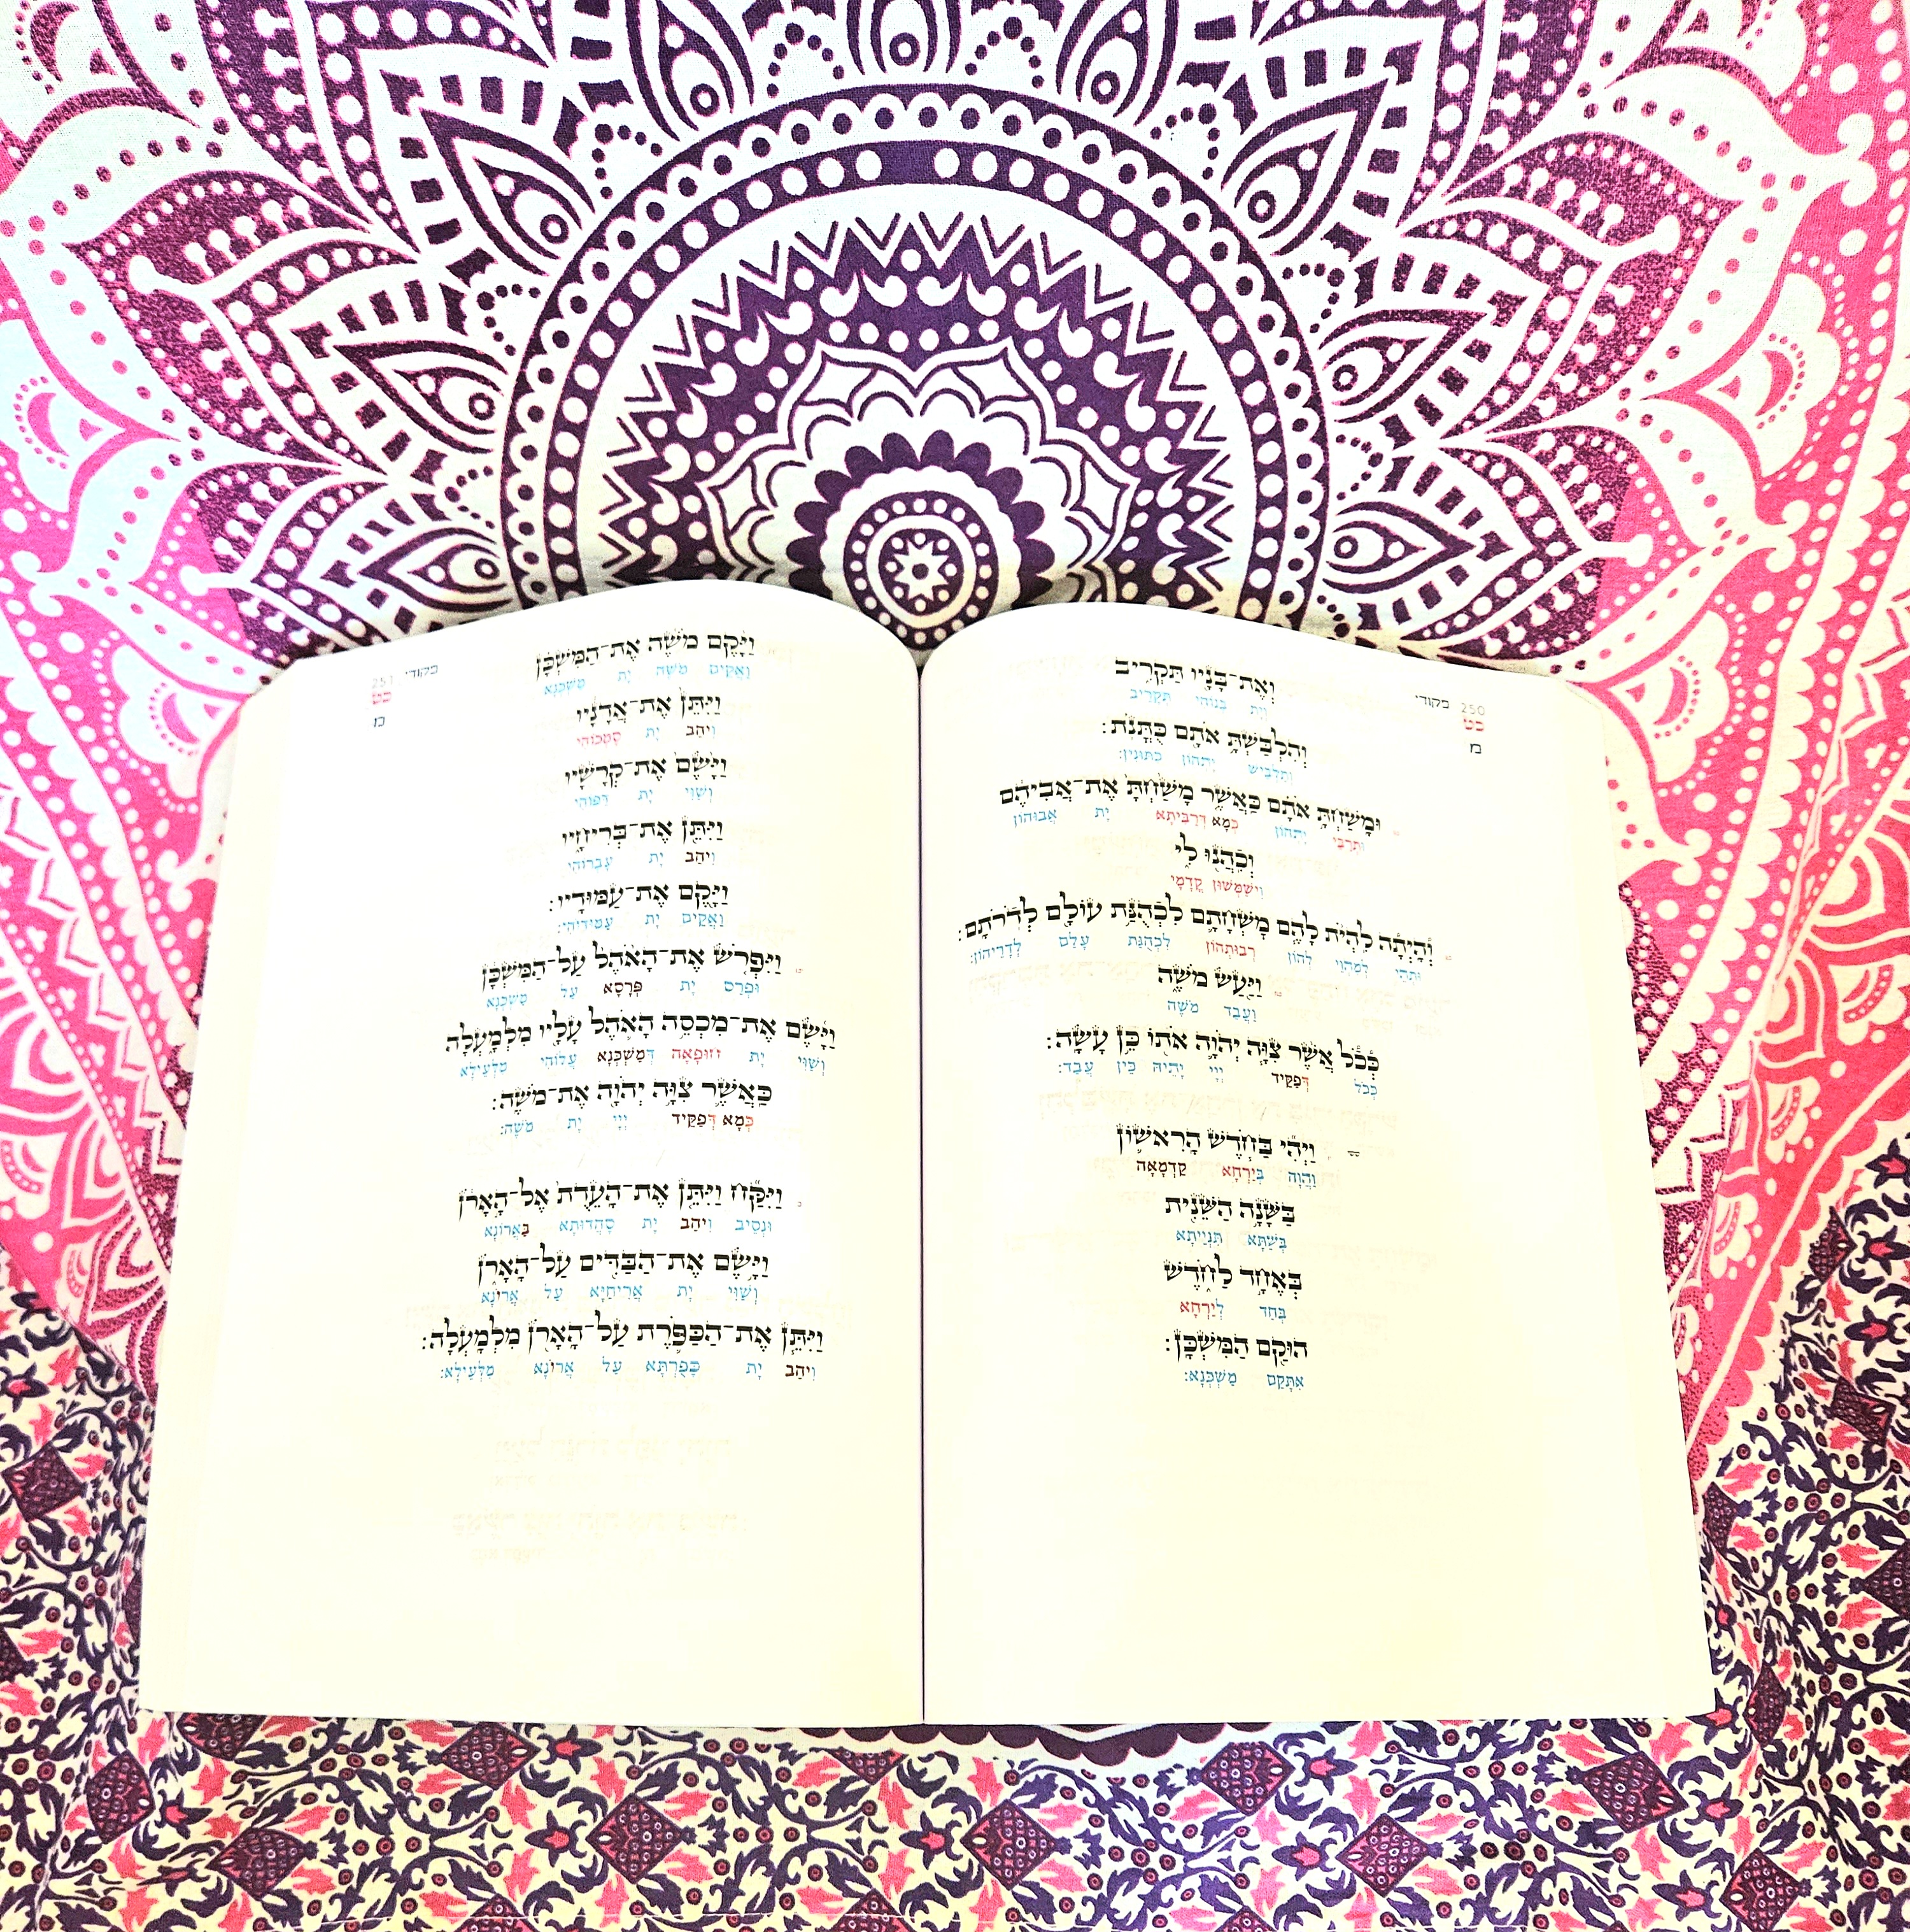 250 פקודי
כט
מ
וְאֶת־בָּנָ֖יו תַּקְרִ֑יב
וְיָת בְּנוֹהִי תְּקָרֵיב
וְהִלְבַּשְׁתָּ֥ אֹתָ֖ם כֻּתֳּנֹֽת׃
וְתַלְבֵּישׁ יָתְהוֹן כִּתּוּנִין׃
וּמָשַׁחְתָּ֣ אֹתָ֗ם כַּאֲשֶׁ֤ר מָשַׁ֙חְתָּ֙ אֶת־אֲבִיהֶ֔ם
וּתְרַבֵּי יָתְהוֹן כְּמָא דְּרַבִּיתָא יָת אֲבוּהוֹן
וְכִהֲנ֖וּ לִ֑י
וִישַׁמְּשׁוּן קֳדָמָי
וְ֠הָיְתָ֠ה לִהְיֹ֨ת לָהֶ֧ם מָשְׁחָתָ֛ם לִכְהֻנַּ֥ת עוֹלָ֖ם לְדֹרֹתָֽם׃
וּתְהֵי לְמִהְוֵי לְהוֹן רְבוּתְהוֹן לִכְהֻנַּת עָלַם לְדָרֵיהוֹן׃
וַיַּ֖עַשׂ מֹשֶׁ֑ה
וַעֲבַד מֹשֶׁה
כְּ֠כֹ֠ל אֲשֶׁ֨ר צִוָּ֧ה יְהוָ֛ה אֹת֖וֹ כֵּ֥ן עָשָֽׂה׃
כְּכֹל דְּפַקֵּיד יְיָ יָתֵיהּ כֵּין עֲבַד׃
וַיְהִ֞י בַּחֹ֧דֶשׁ הָרִאשׁ֛וֹן
וַהֲוָה בְּיַרְחָא קַדְמָאָה
בַּשָּׁנָ֥ה הַשֵּׁנִ֖ית
בְּשַׁתָּא תִּנְיֵיתָא
בְּאֶחָ֣ד לַחֹ֑דֶשׁ
בְּחַד לְיַרְחָא
הוּקַ֖ם הַמִּשְׁכָּֽן׃
אִתָּקַם מַשְׁכְּנָא׃
פקודי 251
כט
מ
וַיָּ֨קֶם מֹשֶׁ֜ה אֶת־הַמִּשְׁכָּ֗ן
וַאֲקֵים מֹשֶׁה יָת מַשְׁכְּנָא
וַיִּתֵּן֙ אֶת־אֲדָנָ֔יו
וִיהַב יָת סָמְכוֹהִי
וַיָּ֙שֶׂם֙ אֶת־קְרָשָׁ֔יו
וְשַׁוִּי יָת דַּפּוֹהִי
וַיִּתֵּ֖ן אֶת־בְּרִיחָ֑יו
וִיהַב יָת עָבְרוֹהִי
וַיָּ֖קֶם אֶת־עַמּוּדָֽיו׃
וַאֲקֵים יָת עַמּוּדֹוהִי׃
וַיִּפְרֹ֤שׂ אֶת־הָאֹ֙הֶל֙ עַל־הַמִּשְׁכָּ֔ן
וּפְרַס יָת פְּרָסָא עַל מַשְׁכְּנָא
וַיָּ֜שֶׂם אֶת־מִכְסֵ֥ה הָאֹ֛הֶל עָלָ֖יו מִלְמָ֑עְלָה
וְשַׁוִּי יָת חוֹפָאָה דְּמַשְׁכְּנָא עֲלוֹהִי מִלְּעֵילָא
כַּאֲשֶׁ֛ר צִוָּ֥ה יְהוָ֖ה אֶת־מֹשֶֽׁה׃
כְּמָא דְּפַקֵּיד יְיָ יָת מֹשֶׁה׃
וַיִּקַּ֞ח וַיִּתֵּ֤ן אֶת־הָעֵדֻת֙ אֶל־הָ֣אָרֹ֔ן
וּנְסֵיב וִיהַב יָת סָהֲדוּתָא בַּאֲרוֹנָא
וַיָּ֥שֶׂם אֶת־הַבַּדִּ֖ים עַל־הָאָרֹ֑ן
וְשַׁוִּי יָת אֲרִיחַיָּא עַל אֲרוֹנָא
וַיִּתֵּ֧ן אֶת־הַכַּפֹּ֛רֶת עַל־הָאָרֹ֖ן מִלְמָֽעְלָה׃
וִיהַב יָת כָּפֻרְתָּא עַל אֲרוֹנָא מִלְּעֵילָא׃